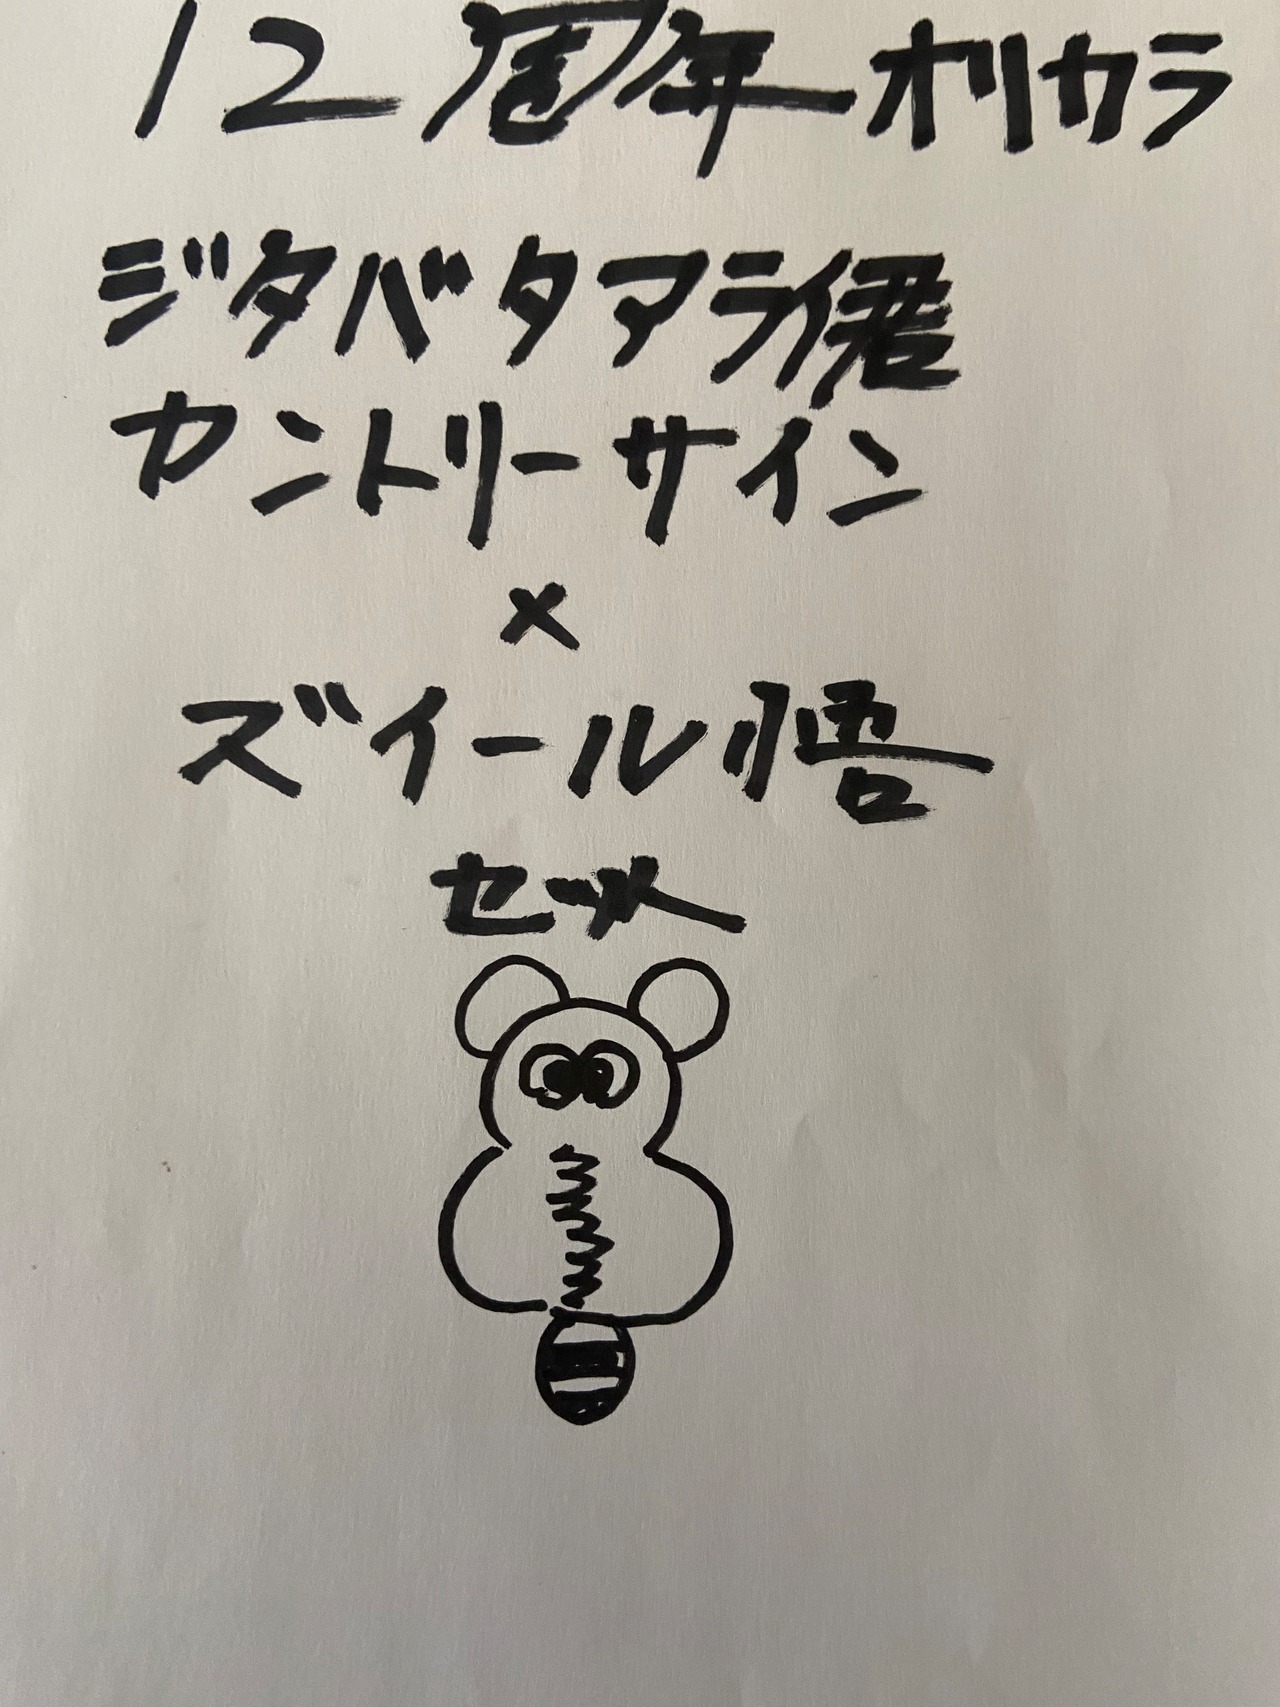 12周年オリカラ
ジタバタアライ君
カントリーサイン
×
ズイール悟
セット